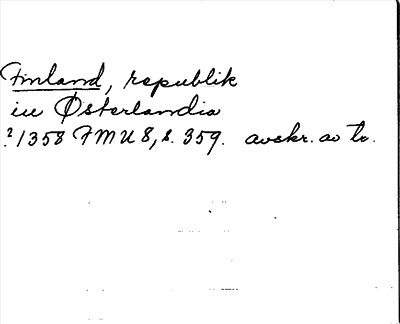 Finland, republik
in Østerlandia
?1358 FMU 8, s. 359. avskr. av to.